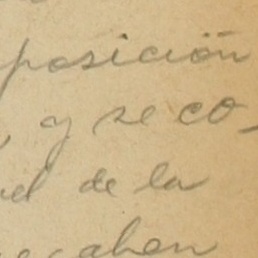 posición
, y se co-
de la
caben